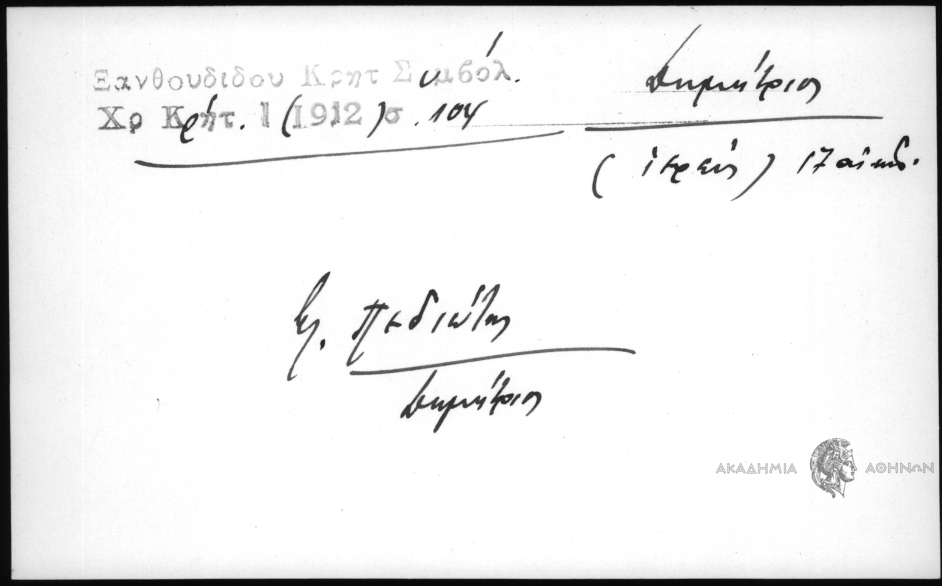 Ξανθουδιδου Κρητ Συμβόλ.
Χρ Κρήτ. 1 (1912) σ. 104
Δημήτριος
(ἱερεύς) 17 αἰών.
βλ. Πεδιώτης
Δημήτριος
ΑΚΑΔΗΜΙΑ ΑΘΗΝΩΝ